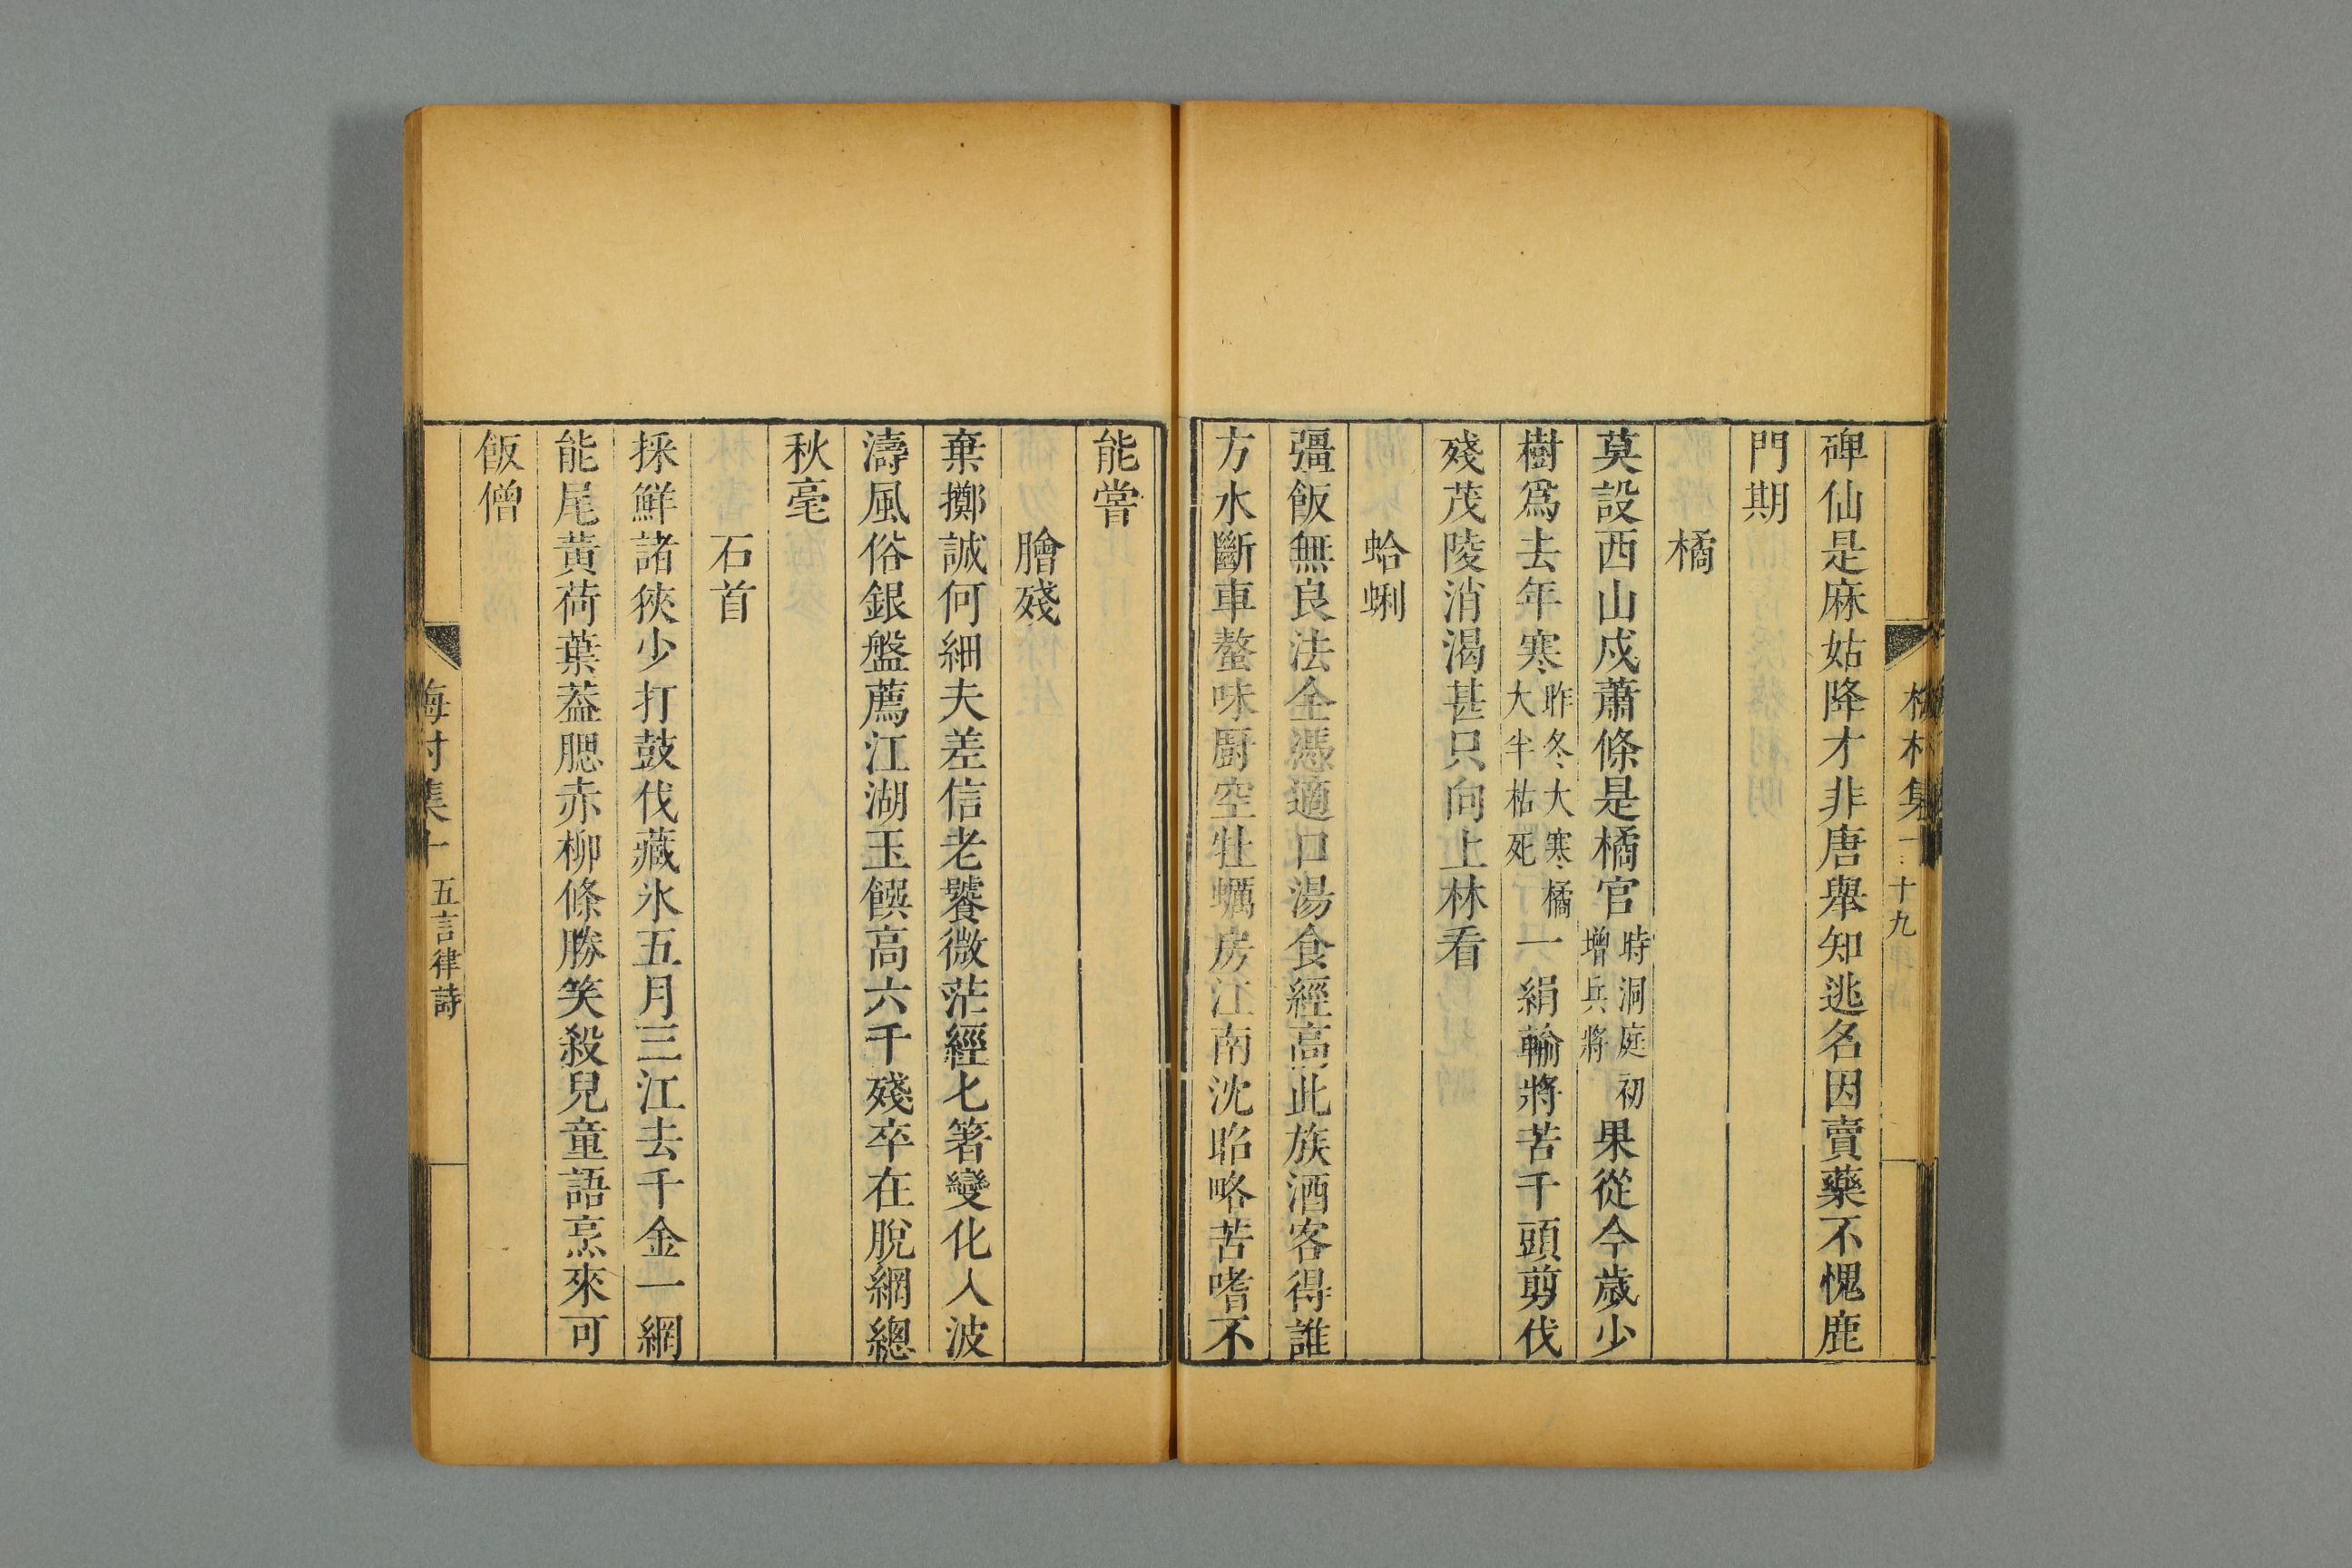 梅村集十 十九
碑仙是麻姑降才非唐舉知逃名因賣藥不愧鹿
門期
橘
莫設西山戍蕭條是橘官時洞庭初增兵將果從今歲少
樹爲去年寒昨冬大寒橘大半枯死一絹輸將苦千頭剪伐
殘茂陵消渴甚只向上林看
蛤蜊
彊飯無良法全憑適口湯食經高此族酒客得誰
方水斷車螯味厨空牡蠣房江南沈昭略苦嗜不
能嘗
膾殘
棄擲誠何細夫差信老饕微茫經匕箸變化入波
濤風俗銀盤薦江湖玉饌高六千殘卒在脫網總
秋毫
石首
採鮮諸狹少打鼓伐藏氷五月三江去千金一網
能尾黃荷葉葢腮赤柳條勝笑殺兒童語烹來可
飯僧
梅村集十 五言律詩